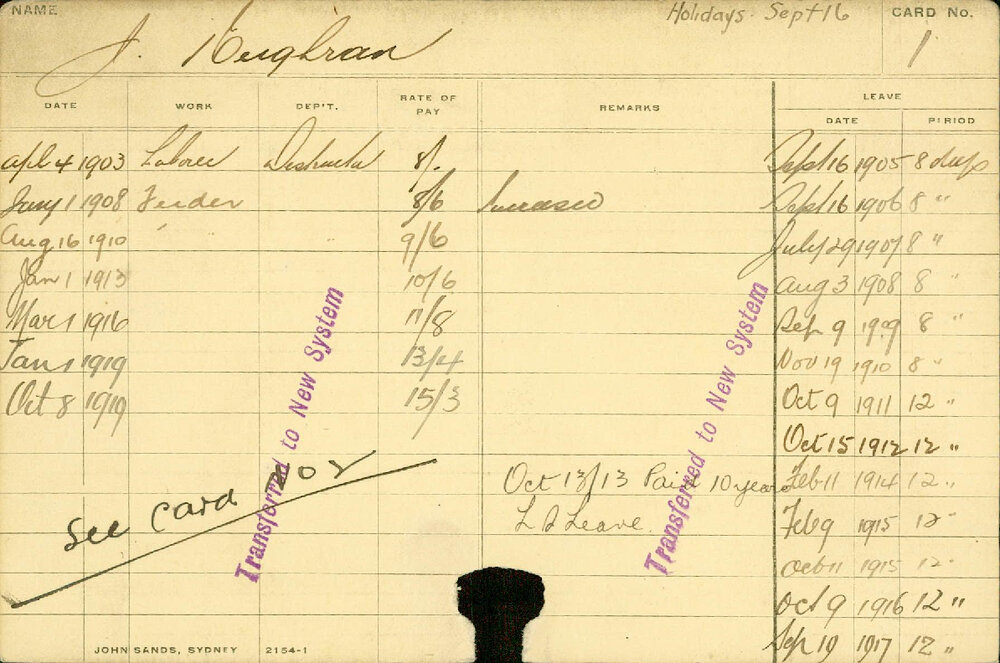 NAME Holidays. Sept 16 CARD No.
J. Keighran 1
DATE WORK DEP'T. RATE OF PAY REMARKS LEAVE
DATE PERIOD
Apl 4 1903 Laborer 8/. Sept 16 1905 8 days
Jany 1 1908 Feeder 8/6 Increased Sept 16 1906 8 "
Aug 16 1910 " 9/6 July 29 1907 8 "
Jan 1 1913 10/6 Aug 3 1908 8 "
Mar 1 1916 11/8 Sep 9 1909 8 "
Jan 1 1919 13/4 Nov 19 1910 8 "
Oct 8 1919 15/3 Oct 9 1911 12 "
Oct 15 1912 12 "
See Card No 2 Oct 13/13 Paid 10 years Feb 11 1914 12 "
L S Leave. Feb 9 1915 12 "
Oct 11 1915 12 "
Oct 9 1916 12 "
Sep 19 1917 12 "
Transferred to New System
Transferred to New System
JOHN SANDS, SYDNEY 2154-1